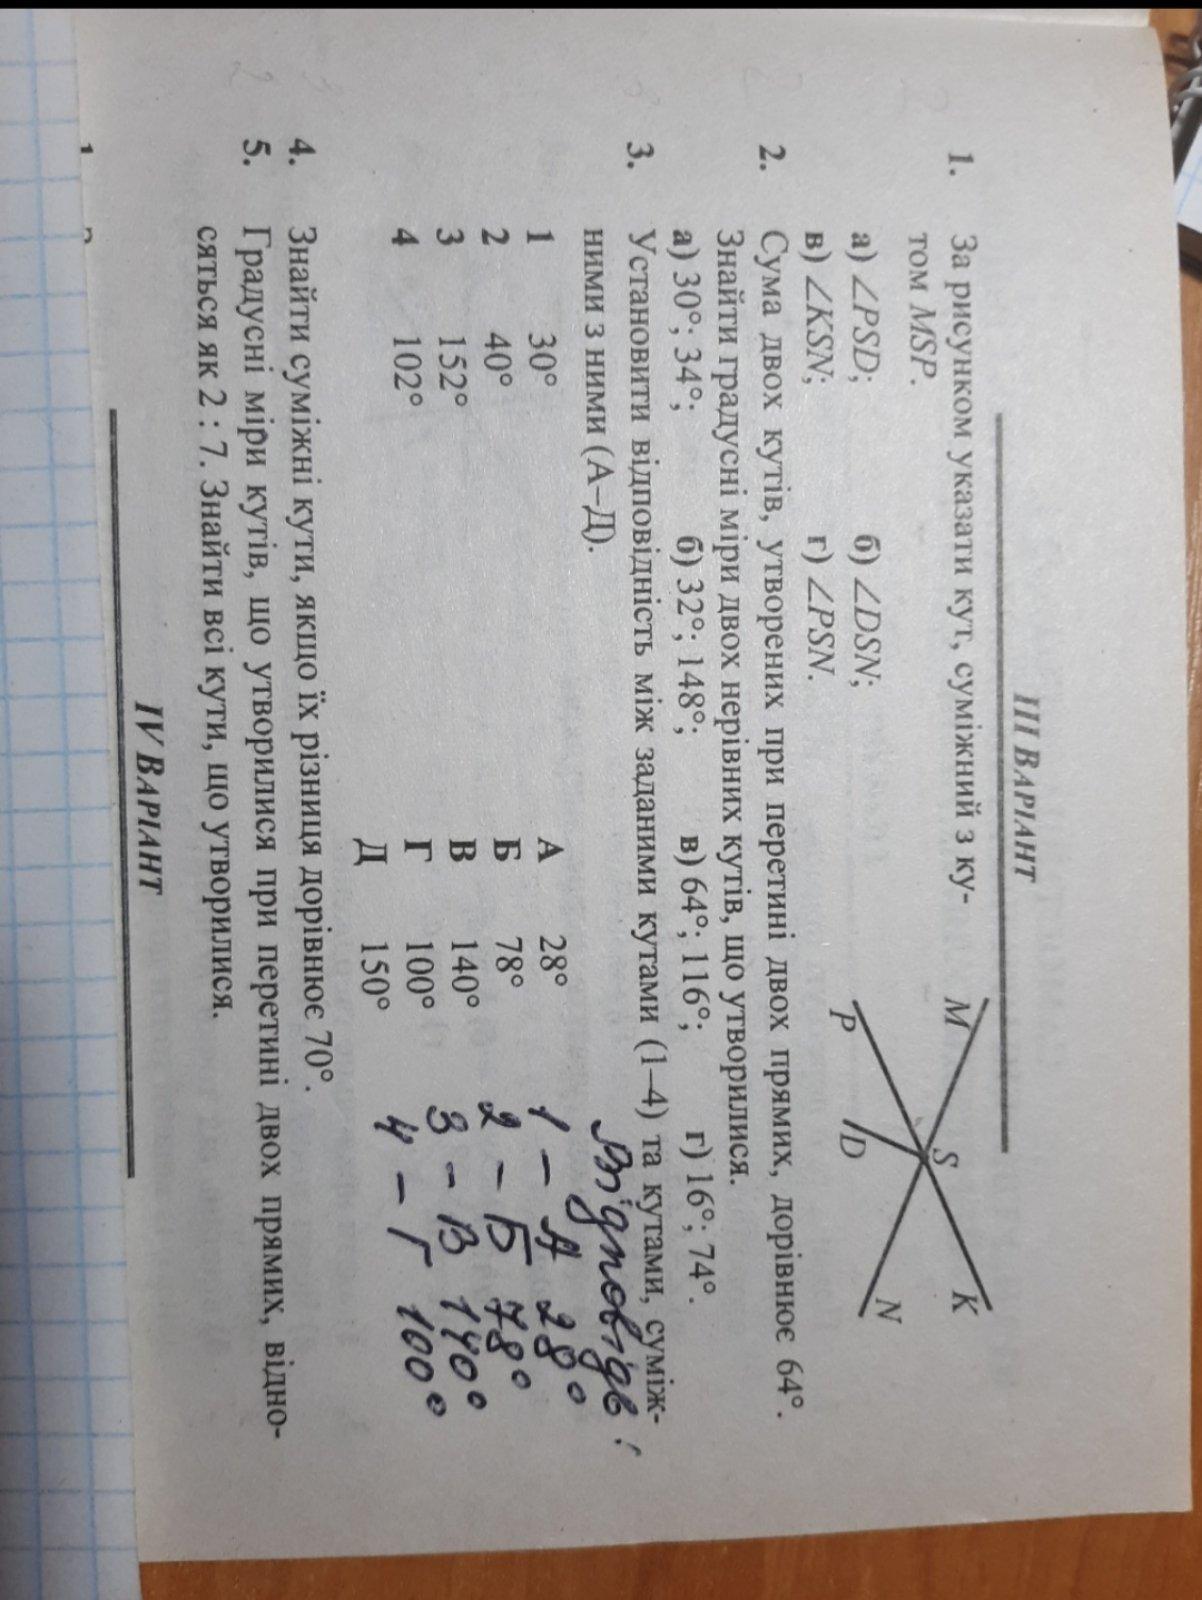 III ВАРІАНТ
1. За рисунком указати кут, суміжний з ку-
том MSP.
а) ∠PSD; б) ∠DSN;
в) ∠KSN; г) ∠PSN.
M
S
K
P
D
N
2. Сума двох кутів, утворених при перетині двох прямих, дорівнює 64°.
Знайти градусні міри двох нерівних кутів, що утворилися.
а) 30°; 34°; б) 32°; 148°; в) 64°; 116°; г) 16°; 74°.
3. Установити відповідність між заданими кутами (1–4) та кутами, суміж-
ними з ними (А–Д).
1 30° А 28°
2 40° Б 78°
3 152° В 140°
4 102° Г 100°
Д 150°
Відповідь:
1 – А 28°
2 – Б 78°
3 – В 140°
4 – Г 100°
4. Знайти суміжні кути, якщо їх різниця дорівнює 70°.
5. Градусні міри кутів, що утворилися при перетині двох прямих, відно-
сяться як 2 : 7. Знайти всі кути, що утворилися.
IV ВАРІАНТ